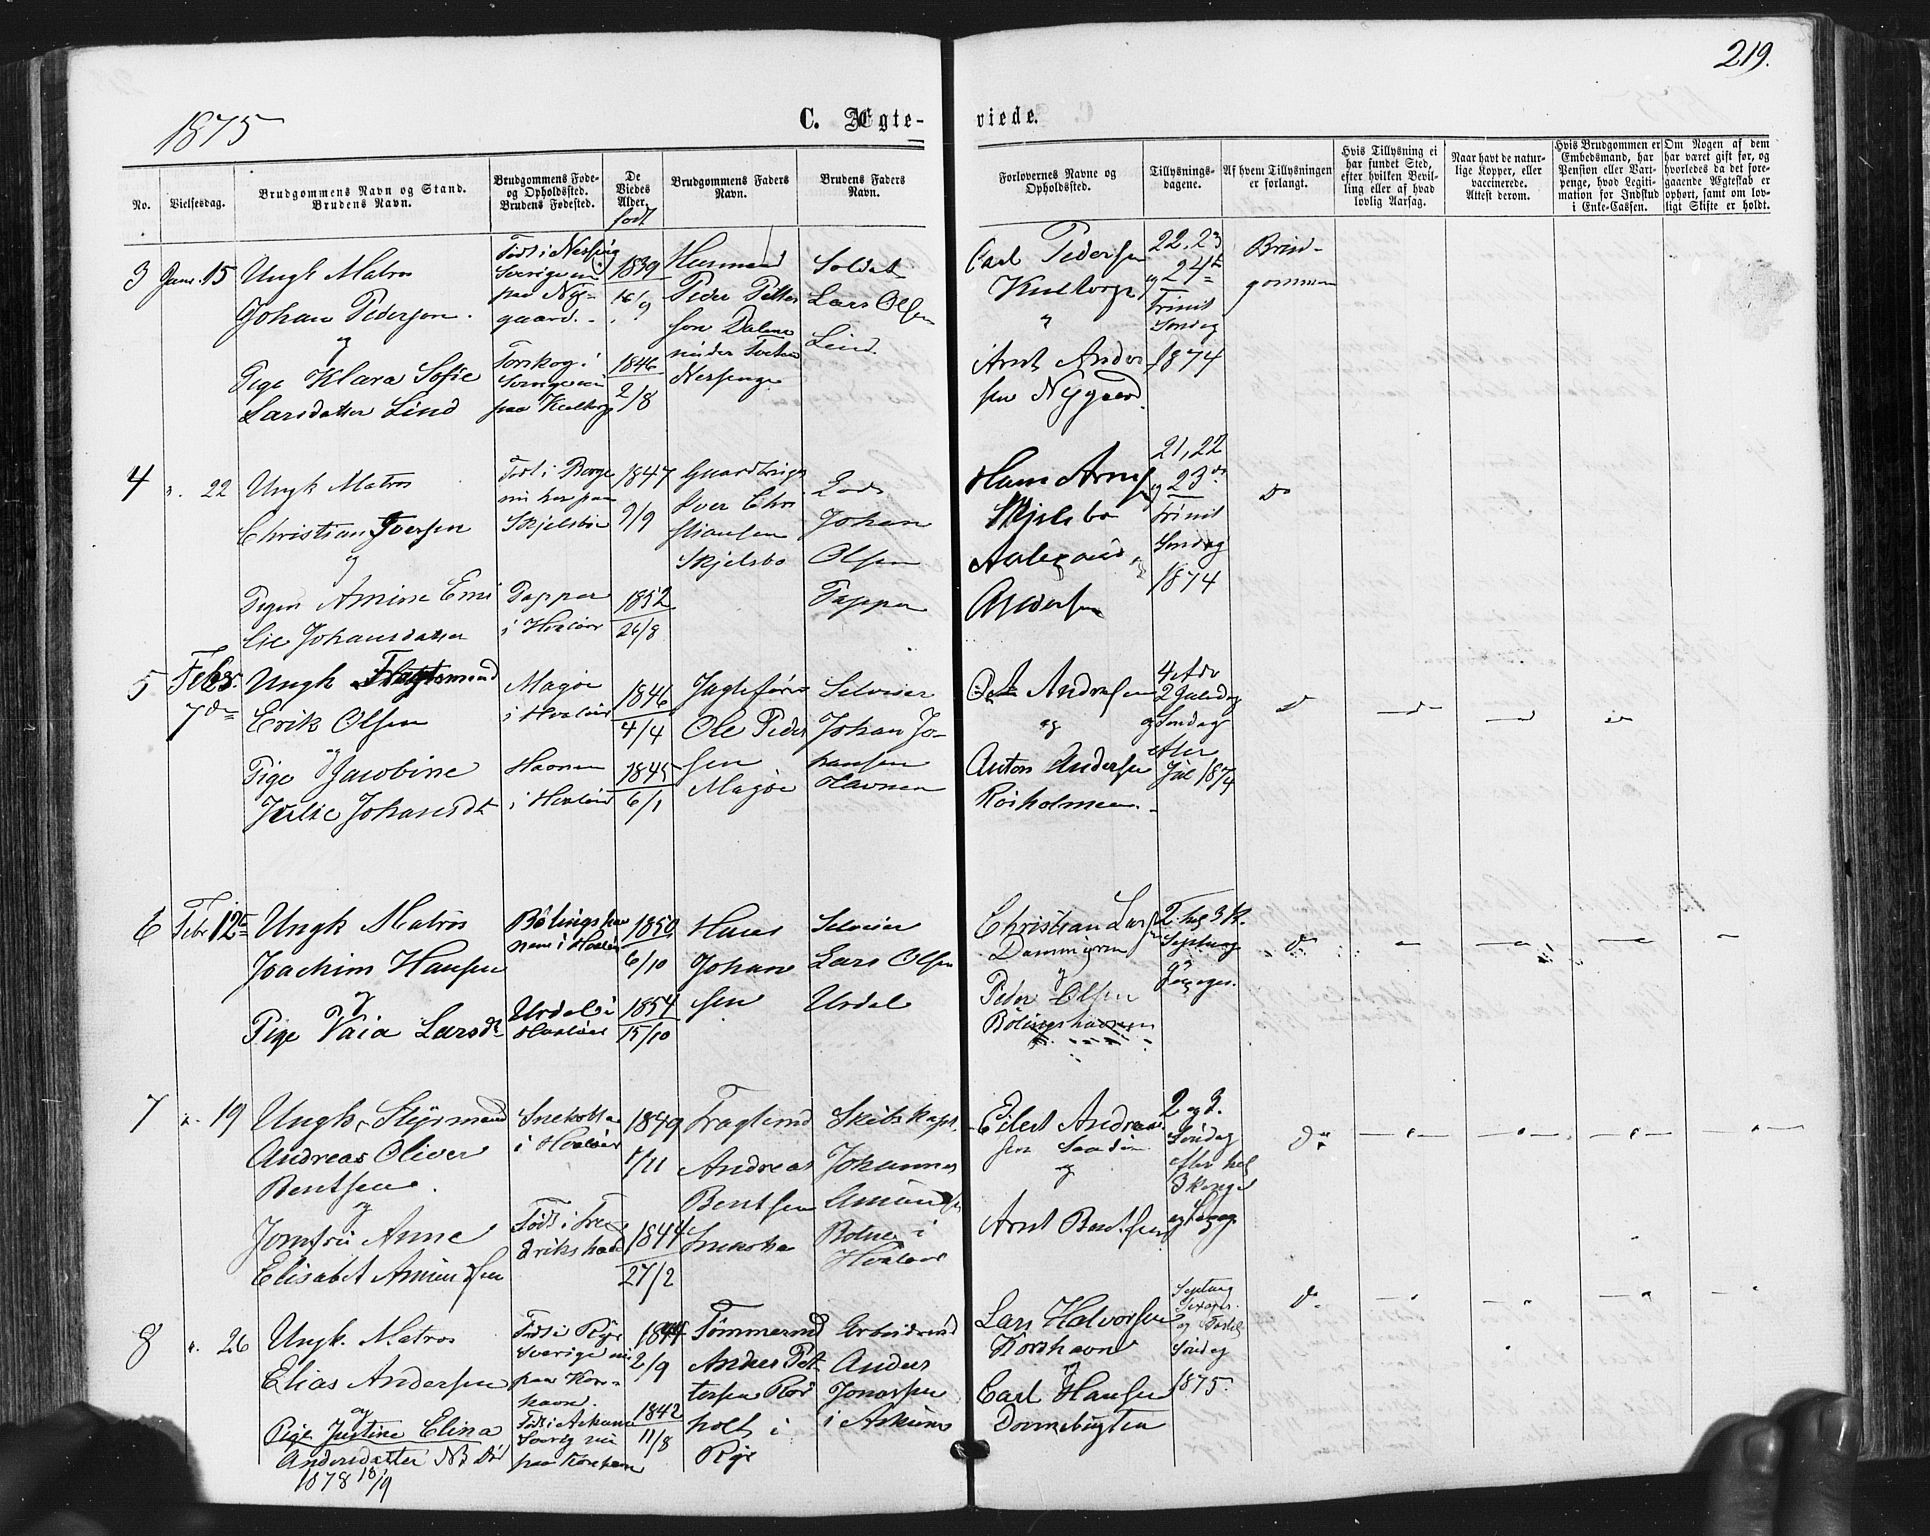 219.
1875
C. Ægte-
viede.
No.
Vielsesdag.
Brudgommens Navn og Stand.
Brudens Navn.
Brudgommens Føde-
og Opholdssted.
Brudens Fødested.
De
Viedes
Alder.
født
Brudgommens Faders
Navn.
Brudens Faders
Navn.
Forlovernes Navne og
Opholdssted.
Tillysnings-
dagene.
Af hvem Tillysningen
er forlangt.
Hvis Tillysning ei
har fundet Sted,
efter hvilken Bevil-
ling eller af hvad
lovlig Aarsag.
Naar havt de natur-
lige Kopper, eller
vaccinerede.
Attest derom.
Hvis Brudgommen er
Embedsmand, har
Pension eller Vart-
penge, hvad Legiti-
mation for Indskud
i Enke-Cassen.
Om Nogen af dem
har været gift før, og
hvorledes da det fore-
gaaende Ægteskab er
ophørt, samt om lov-
ligt Skifte er holdt.
3 Janr. 15
Ungk Matros
Johan Pedersen.
og
Pige Klara Sofie
Larsdatter Lind
Født i
Sverige nu
paa Ny-
gaard.
Torskog i
Sverige nu
paa
1839
16/9
1846
2/8
Husmand
Peder Petter
sen Dalene
under
Soldat
Lars Olsen
Lind.
Carl Pedersen
og
Arnt Ander
sen Nygaard
22, 23
og 24de
Trinit
Søndag
1874
Brud-
gommen
4 ". 22
Ungk Matros
Christian Iversen
og
Pigen Amine Emi
lie Johansdatter
Født i Borge
nu her paa
Skjelsbo
Papper
i Hvaløer
1847
9/9
1852
26/8
Gaardbruger
Iver Chri
stiansen
Skjelsbo
Lods
Johan
Olsen
Papper
Hans Arns
Skjelsbo
og
Andersen
21, 22
og 23de
Trinit
Søndag
1874
Do
5 Febr.
7de
Ungk Fragtemand
Erik Olsen
og
Pige Jacobine
Julie Johansdt
Magøe
i Hvaløer
Havnen
i Hvaløer
1846
4/4
1845
6/1
Jagtefører
Ole Peder
sen
Magøe
Selveier
Johan Jo-
hansen
Havnen
Andresen
og
Anton Andersen
Rosholmen.
4 Adv
2 Juledag
og Søndag
efter
Jul 1874
Do
6 Febr 12te
Ungk Matros
Joachim Hansen
og
Pige Vaia Larsdt
Bølingshav
nen i Hvaløer
Urdal i
Hvaløer
1850
6/10
1854
15/10
Hans
Johan
sen
Selveier
Lars Olsen
Urdal
Christian Lars
Dammyren
og
Peder Olsen
Bølingshavnen
2. hel 3 K.
Septuag
og
Do
7 ". 19
Ungk, Styrmand
Andreas Oliver
Bentsen.
og
Jomfru Anne
Elisabet Amundsen
i Hvaløer
Født i Fre
drikshald
1849
1/11
1844
27/2
Fragtemd
Andreas
Bentsen
Skibskapt.
Johannes
Amundsen
i
Hvaløer
Eilert Andrea
sen
og
Arnt Bentsen
2 og 3.
Søndag
efter hel
3 Konger
Do
8 ". 26
Ungk. Matros
Elias Andersen
og
Pige Justine Elina
Andersdatter NB Død
1878 18/9
Født i Ryr
Sverige nu
paa Kors-
havn.
Født i Askum
Sverig nu
paa Korshavn
1844
2/9
1842
11/8
Tømmermd
Anders Pet-
tersen Rör
holt i
Ryr
Arbeidsmd
Anders
Jonassen
i Askum
Lars Halvorsen
Korshavn
og
Carl Hansen
Dovnebugten
Septuag
Sexages.
og Fastel
Søndag
1875.
Do